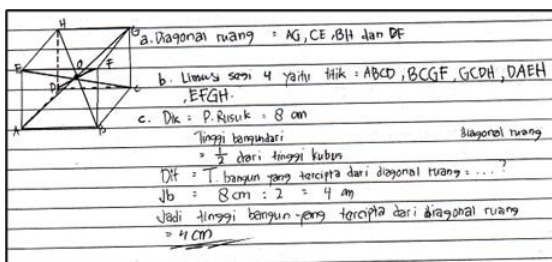 H
G
E
O
F
D
C
A
B
a. Diagonal ruang = AG, CE, BH dan DF
b. Limas segi 4 yaitu titik = ABCD, BCGF, GCDH, DAEH
, EFGH.
c. Dik = P. Rusuk = 8 cm
Tinggi bangundari diagonal ruang
= 1/2 dari tinggi kubus
Dit = T. bangun yang tercipta dari diagonal ruang = ... ?
Jb = 8 cm : 2 = 4 cm
Jadi tinggi bangun yang tercipta dari diagonal ruang
= 4 cm